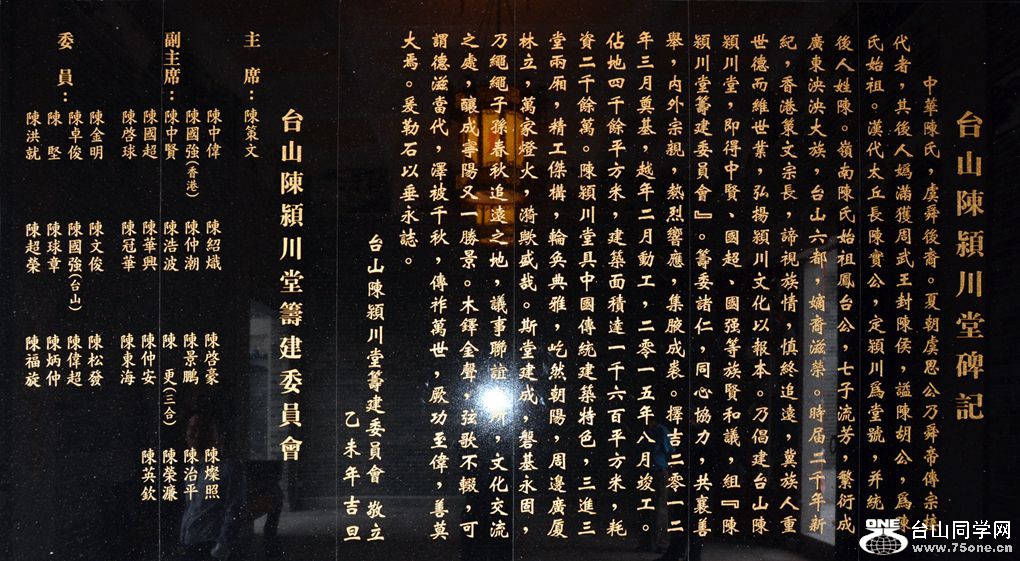 台山陳潁川堂碑記
中華陳氏，虞舜後裔。夏朝虞思公乃舜帝傳宗
代者，其後人媯滿獲周武王封陳侯，謚陳胡公，爲陳
氏始祖。漢代太丘長陳實公，定潁川爲堂號，并統
後人姓陳。嶺南陳氏始祖鳳台公，七子流芳，繁衍成
廣東泱泱大族，台山六都，嫡裔滋榮。時届二千年新
紀，香港策文宗長，諦視族情，慎終追遠，冀族人重
世德而維世業，弘揚潁川文化以報本。乃倡建台山陳
潁川堂，即得中賢、國超、國强等族賢和議，組『陳
潁川堂籌建委員會』。籌委諸仁，同心協力，共襄善
舉，内外宗親，熱烈響應，集腋成裘。擇吉二零一二
年三月奠基，越年二月動工，二零一五年八月竣工。
佔地四千餘平方米，建築面積達一千六百平方米，耗
資二千餘萬。陳潁川堂具中國傳統建築特色，三進三
堂兩厢，精工傑構，輪奂典雅，屹然朝陽，周邊廣厦
林立，萬家燈火，漪歟盛哉。斯堂建成，磐基永固，
乃繩繩子孫春秋追遠之地，議事聯誼所，文化交流
之處，釀成寧陽又一勝景。木鐸金聲，弦歌不輟，可
謂德滋當代，澤被千秋，傳祚萬世，厥功至偉，善莫
大焉。爰勒石以垂永誌。
台山陳潁川堂籌建委員會 敬立
乙未年吉旦
台山陳潁川堂籌建委員會
主席：陳策文
副主席：陳中偉 陳紹熾 陳啓豪 陳燦照
陳國強(香港) 陳仲潮 陳景鵬 陳治平
陳中賢 陳浩波 陳更(三合) 陳榮濂
陳國超 陳華興 陳仲安 陳英欽
陳啓球 陳冠華 陳東海
委員：陳金明 陳文俊 陳松發
陳卓俊 陳國強(台山) 陳偉超
陳堅 陳球章 陳炳仲
陳洪就 陳超榮 陳福旋
ONE
台山同学网
www.75one.cn